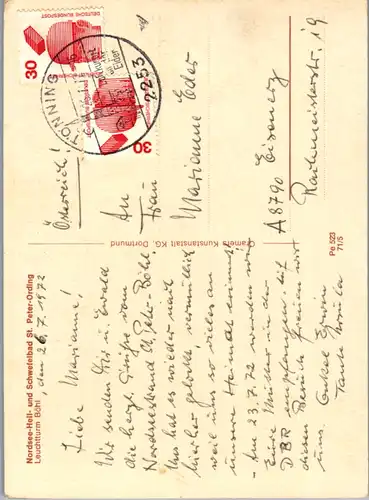 Nordsee-Heil- und Schwefelbad St. Peter-Ording
Leuchtturm Böhl
, den 26.7.1972
Liebe Marianne!
Wir senden Dir u. Ewald
die herzl. Grüße vom
Nordseestrand St. Peter-Böhl.
Uns hat es wieder nach
hierher gelockt vermutlich
weil uns so vieles an
unsere Heimat erinnert
- Am 23.7.72 werden wir
Eure Mutter in der
DBR empfangen. Auf
diesen Besuch freuen wir
uns. Onkel Erwin
Tante
Cramers Kunstanstalt KG, Dortmund
Pe 523
71/S
DEUTSCHE BUNDESPOST
30
30
TÖNNING
2253
Österreich!
An
Frau
Marianne Eder
A 8790 Eisenerz
Radmeisterstr. 19